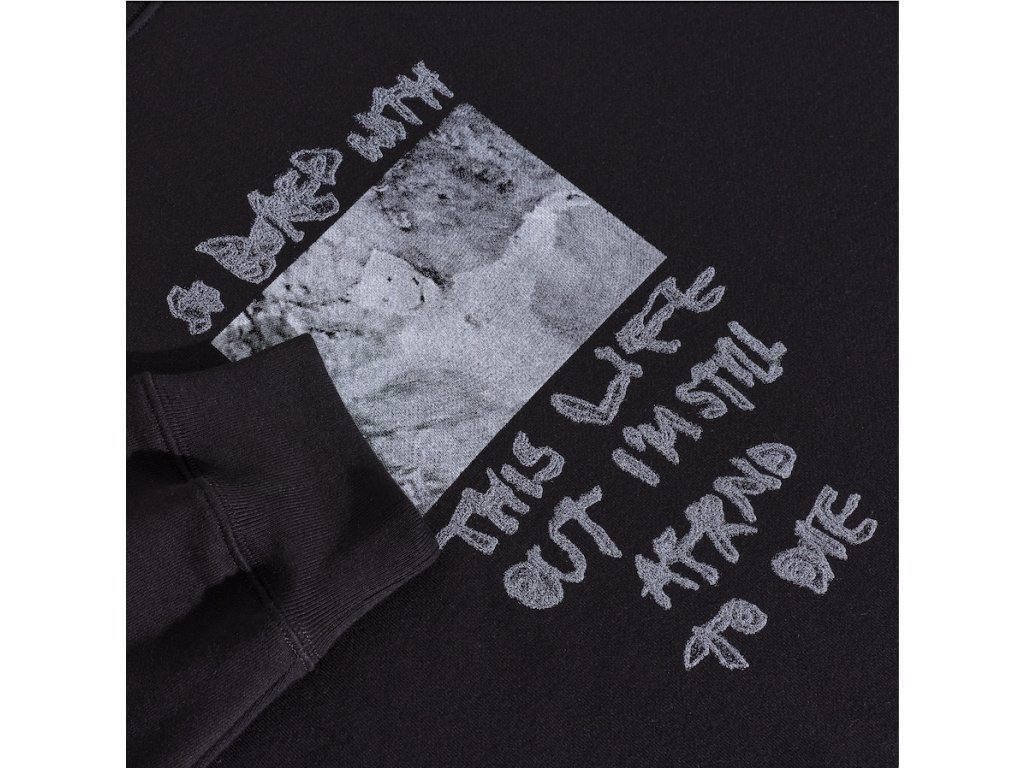 SO BORED WITH
THIS LIFE
OUT I'M STILL
AFRND
TO DIE